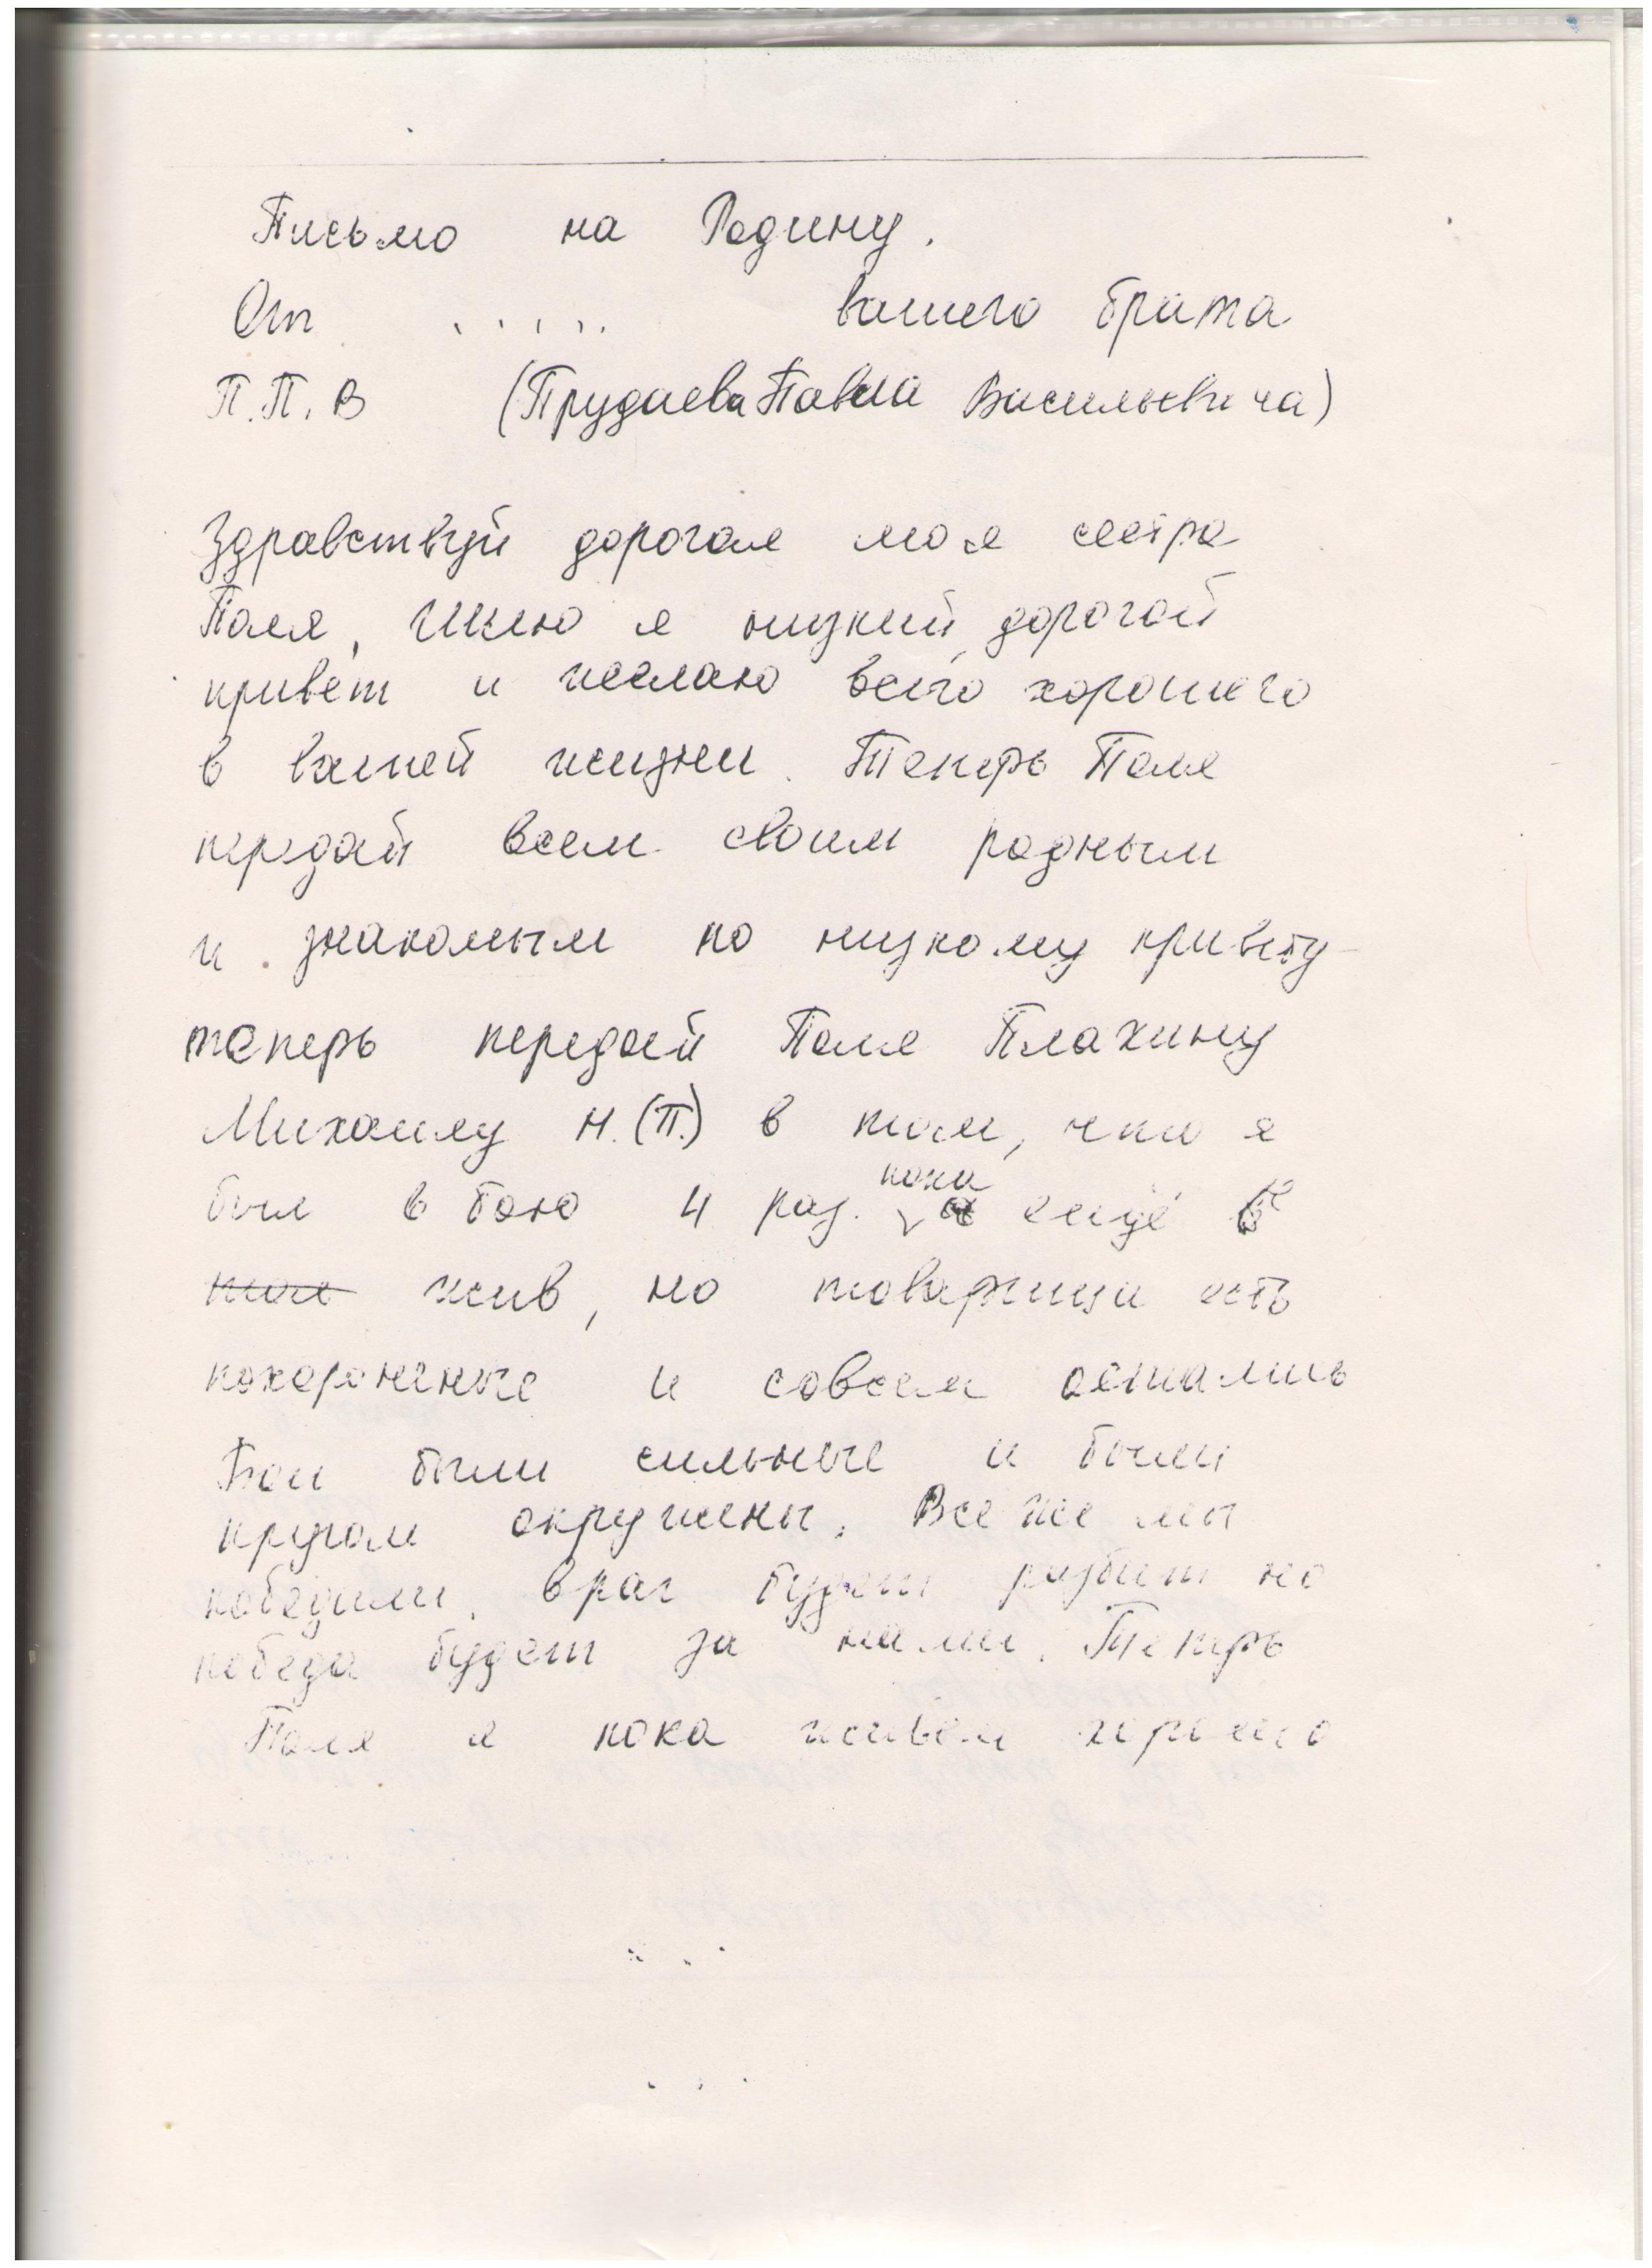 Письмо на Родину.
От ..... вашего брата
П.П.В (Прудаева Павла Васильевича)
Здравствуй дорогая моя сестра
Поля, Шлю я низкий, дорогой
привет и желаю всего хорошего
в вашей жизни. Теперь Поля
передай всем своим родным
и знакомым по низкому привету
теперь передай Поля Плахину
Михаилу Н.(П.) в том, что я
был в бою 4 раз. пока ещё
жив, но товарищи есть
похороненые и совсем остались
Бои были сильные и были
кругом окружены. Все же мы
победили. враг будет разбит но
победа будет за нами. Теперь
Поля я пока живем хорошо